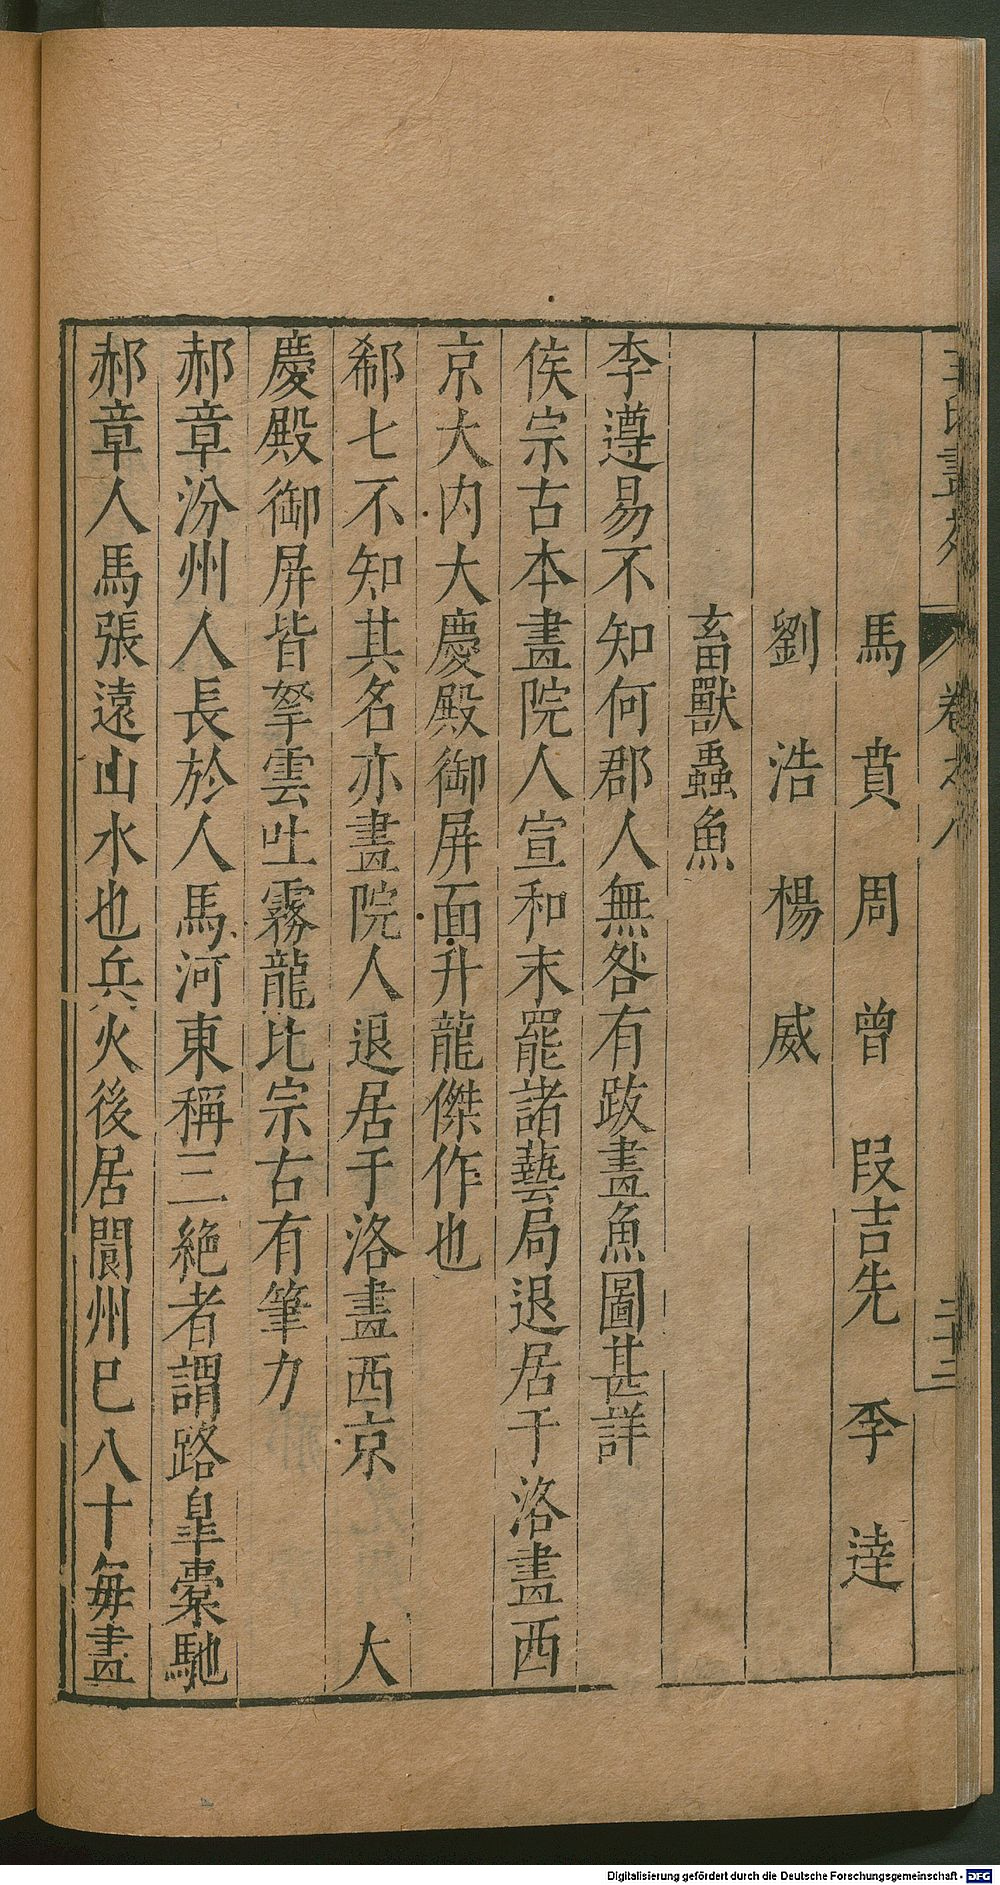 馬賁　周曾　段吉先　李達
劉浩　楊威
畜獸蟲魚
李遵易不知何郡人無咎有跋畫魚圖甚詳
侯宗古本畫院人宣和末罷諸藝局退居于洛畫西
京大內大慶殿御屏面升龍傑作也
郗七不知其名亦畫院人退居于洛畫西京　大
慶殿御屏皆拏雲吐霧龍比宗古有筆力
郝章汾州人長於人馬河東稱三絶者謂路皐橐馳
郝章人馬張遠山水也兵火後居閬州巳八十每畫
卷之八
二十三
Digitalisierung gefördert durch die Deutsche Forschungsgemeinschaft - DFG